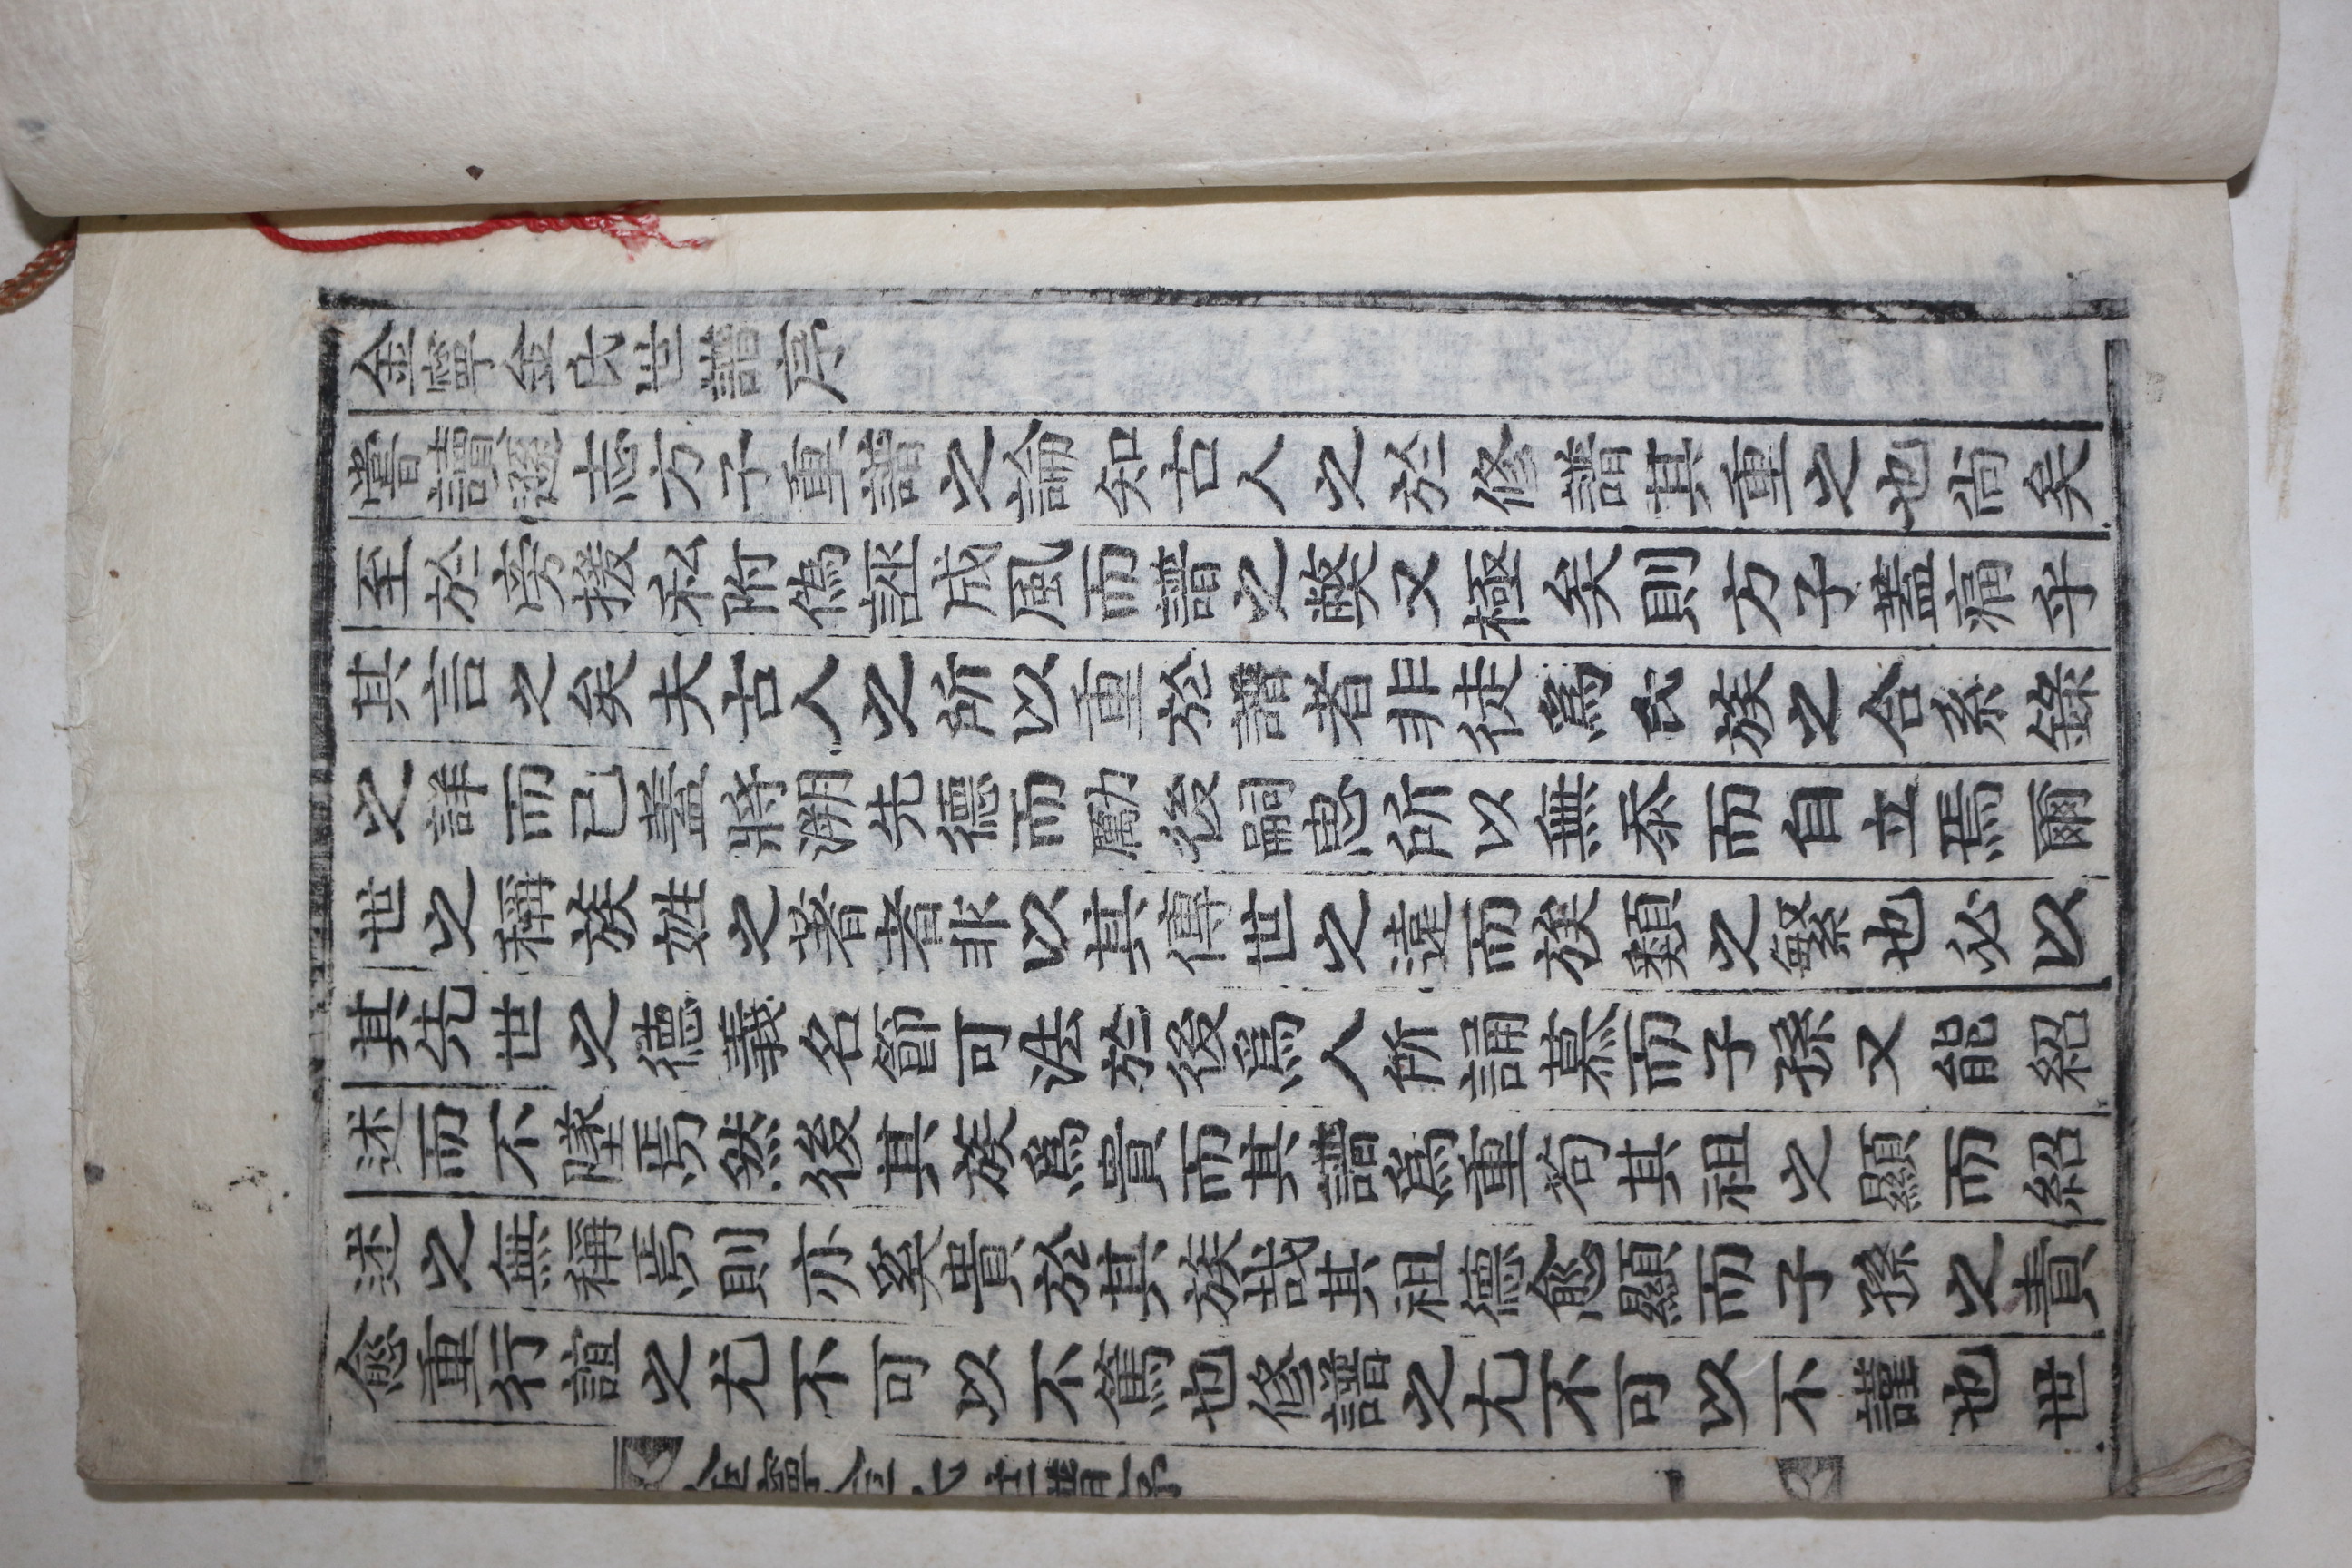 金寧金氏世譜序
嘗讀遜志方子重譜之論知古人之於修譜其重之也尚矣
至於旁援私附僞誣成風而譜之獘又極矣則方子蓋痛乎
其言之矣夫古人之所以重於譜者非徒爲氏族之合系錄
之詳而已蓋將溯先德而勵後嗣思所以無忝而自立焉爾
世之稱族姓之著者非以其傳世之遠而族類之繁也必以
其先世之德義名節可法於後爲人所誦慕而子孫又能紹
述而不墜焉然後其族爲貴而其譜爲重苟其祖之顯而紹
述之無稱焉則亦奚貴於其族哉其祖德愈顯而子孫之責
愈重行誼之尤不可以不篤也修譜之尤不可以不謹也世
金寧金氏世譜序